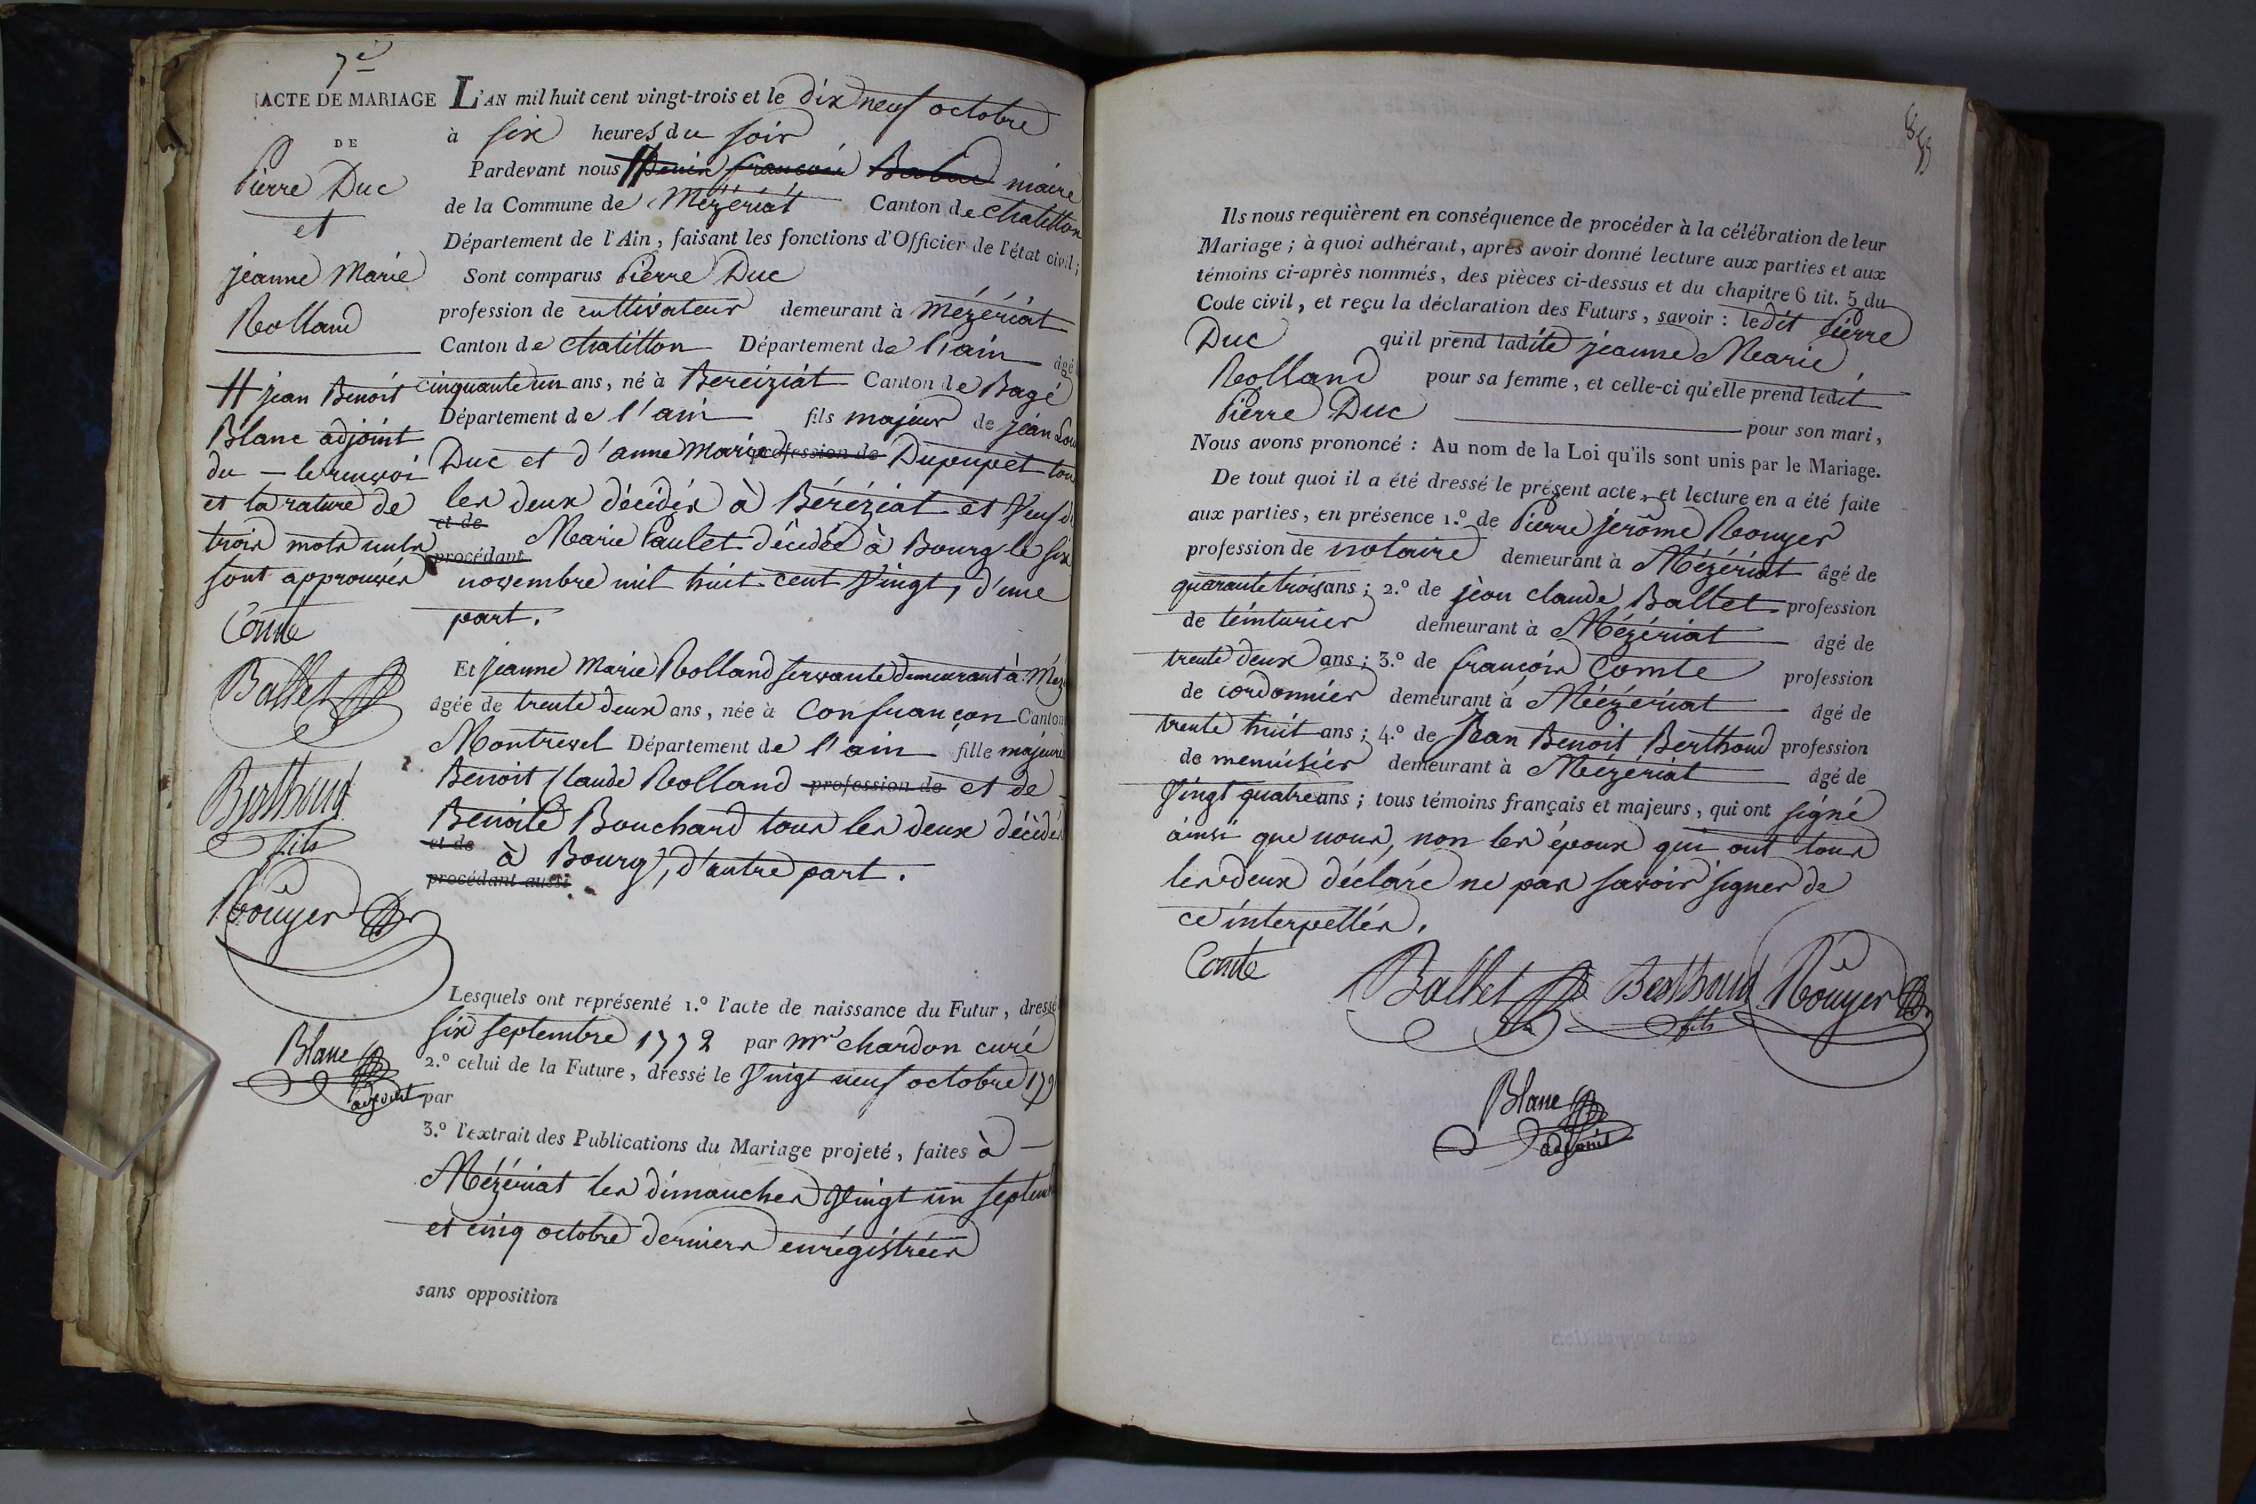 7e
ACTE DE MARIAGE
DE
Pierre Duc
et
jeanne Marie
Rolland
# jean Benoit
Blanc adjoint
du — le renvoi
et la rature de
trois mots nuls
sont approuvés
Comte
Ballet
Berthoud
fils
Rouyer
Blanc
adjoint
L'AN mil huit cent vingt-trois et le dix neuf octobre
à six heures du soir
Pardevant nous # Denis françois maire
de la Commune de Mézériat Canton de chatillon
Département de l'Ain, faisant les fonctions d'Officier de l'état civil;
Sont comparus Pierre Duc
profession de cultivateur demeurant à Mézériat
Canton de chatillon Département de l'ain âgé
cinquante un ans, né à Bereiziat Canton de Bagé
Département de l'ain fils majeur de jean Lou
Duc et d'anne Marie profession de Dupupet tou
les deux décédés à Béréziat et Veuf de
et de Marie Paulet décédée à Bourg le six
procédant novembre mil huit cent Vingt, d'une
part.
Et jeanne Marie Rolland servante demeurant à Méz
âgée de trente deux ans, née à Confrançon Canton
Montrevel Département de l'ain fille majeure
Benoit Claude Rolland profession de et de
Benoite Bouchard tous les deux décédés
et de à Bourg, d'autre part.
procédant aussi
Lesquels ont représenté 1.º l'acte de naissance du Futur, dressé
six septembre 1772 par mr chardon curé
2.º celui de la Future, dressé le Vingt neuf octobre 179
par
3.º l'extrait des Publications du Mariage projeté, faites à —
Mézériat les dimanches Vingt un septemb
et cinq octobre derniers enrégistrées
sans opposition
Ils nous requièrent en conséquence de procéder à la célébration de leur
Mariage; à quoi adhérant, après avoir donné lecture aux parties et aux
témoins ci-après nommés, des pièces ci-dessus et du chapitre 6 tit. 5 du
Code civil, et reçu la déclaration des Futurs, savoir: ledit Pierre
Duc qu'il prend ladite jeanne Marie
Rolland pour sa femme, et celle-ci qu'elle prend ledit
Pierre Duc pour son mari,
Nous avons prononcé: Au nom de la Loi qu'ils sont unis par le Mariage.
De tout quoi il a été dressé le présent acte, et lecture en a été faite
aux parties, en présence 1.º de Pierre jerôme Rouyer
profession de notaire demeurant à Mézériat âgé de
quarante trois ans; 2.º de jean claude Ballet profession
de teinturier demeurant à Mézériat âgé de
trente deux ans; 3.º de françois Comte profession
de cordonnier demeurant à Mézériat âgé de
trente huit ans; 4.º de Jean Benoit Berthoud profession
de menuisier demeurant à Mézériat âgé de
Vingt quatre ans; tous témoins français et majeurs, qui ont signé
ainsi que nous, non les époux qui ont tous
les deux déclaré ne pas savoir signer de
ce interpellés.
Comte Ballet Berthoud Rouyer
fils
Blanc
adjoint